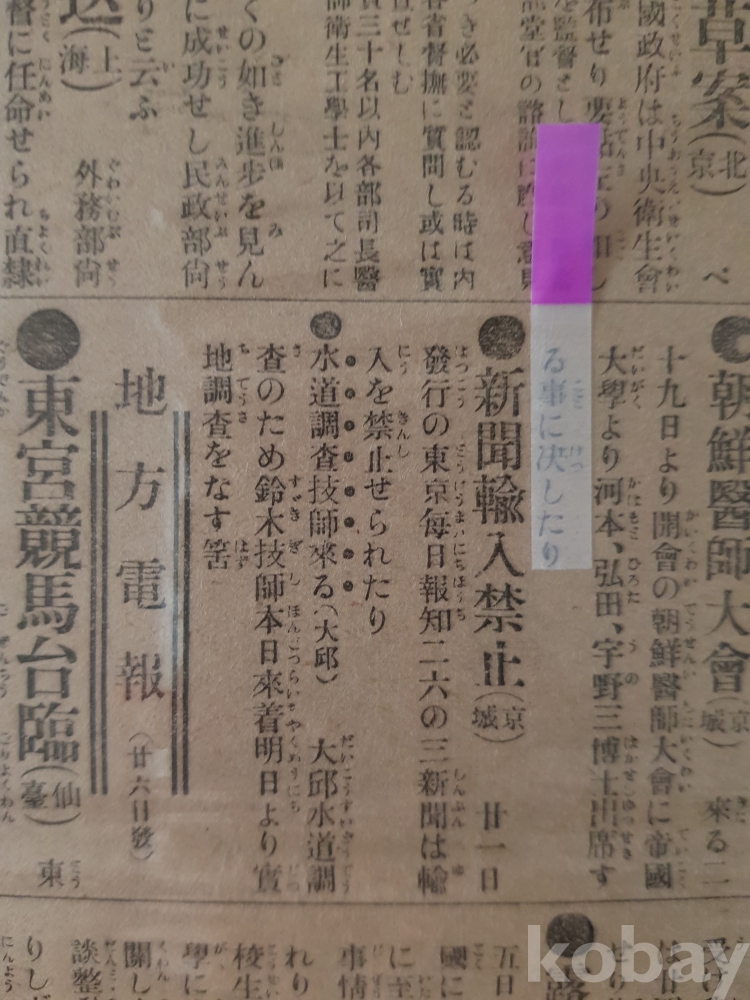 草案(北京)
國政府は中央衛生會
布せり要
を監督とし
き必要と認むる時は内
各省督撫に質問し或は實
査せしむ
三十名以内各部司長醫
師衛生工學士を以て之に
くの如き進歩を見ん
に成功せし民政部尙
りと云ふ
(上海)
外務部尙
督に任命せられ直隷
朝鮮醫師大會(京城) 來る二
十九日より開會の朝鮮醫師大會に帝國
大學より河本、弘田、宇野三博士出席す
る事に決したり
●新聞輸入禁止(京城) 廿一日
發行の東京每日報知二六の三新聞は輸
入を禁止せられたり
●水道調査技師來る(大邱) 大邱水道調
査のため鈴木技師本日來着明日より實
地調査をなす筈
地方電報(廿六日發)
●東宮競馬台臨(仙臺) 東
受け
は日
五日
國に
に至
事情
れり
校生
學に
關し
談整
りし
kobay